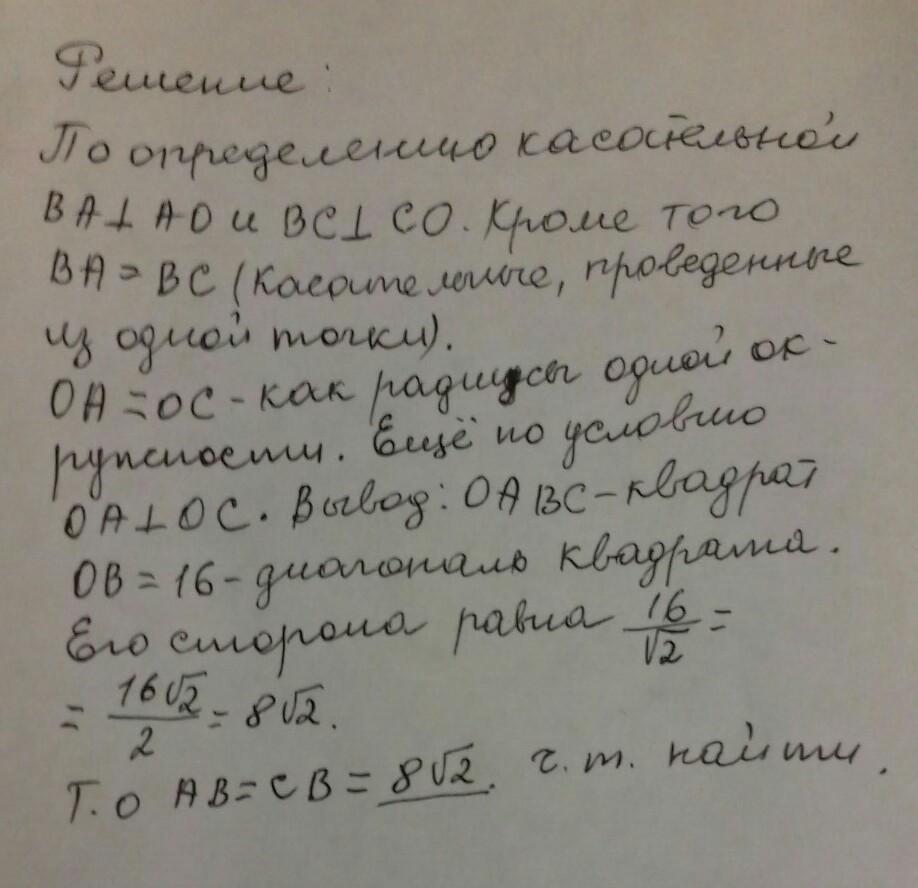 Решение:
По определению касательной
BA⊥AO и BC⊥CO. Кроме того
BA = BC (касательные, проведенные
из одной точки).
OA = OC - как радиусы одной ок-
ружности. Ещё по условию
OA⊥OC. Вывод: OABC - квадрат
OB = 16 - диагональ квадрата.
Его сторона равна 16/√2 =
= 16√2/2 = 8√2.
Т.о AB = CB = 8√2. ч.т. найти.